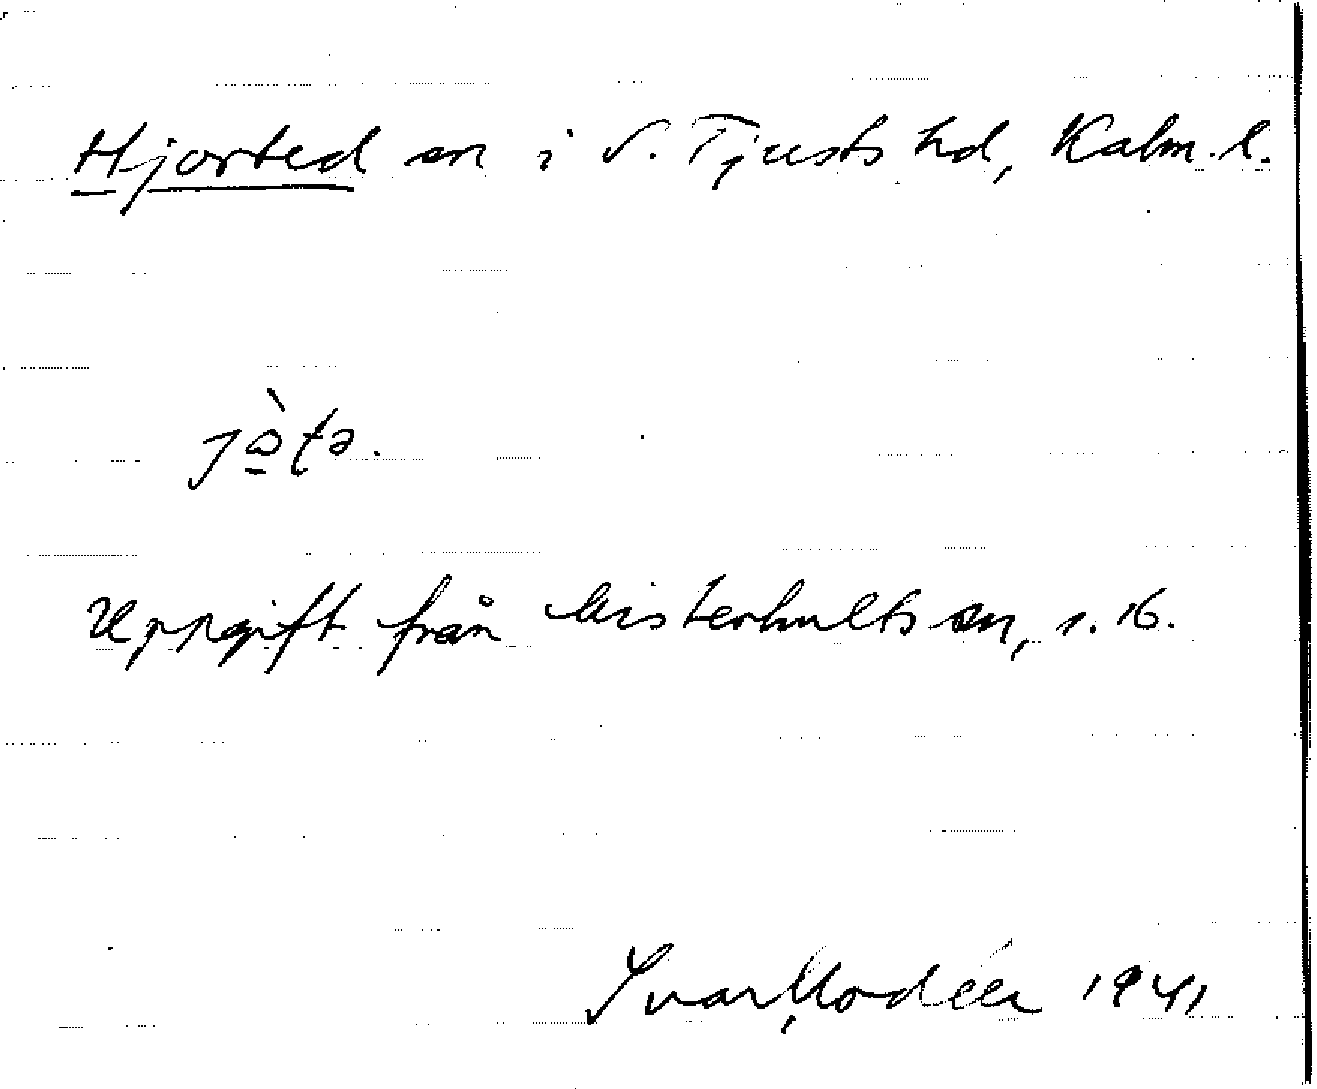 Hjorted sn i S. Tjusts hd, Kalm. l.
Uppgift från Misterhults sn, s. 16.
Ivar Modéer 1941